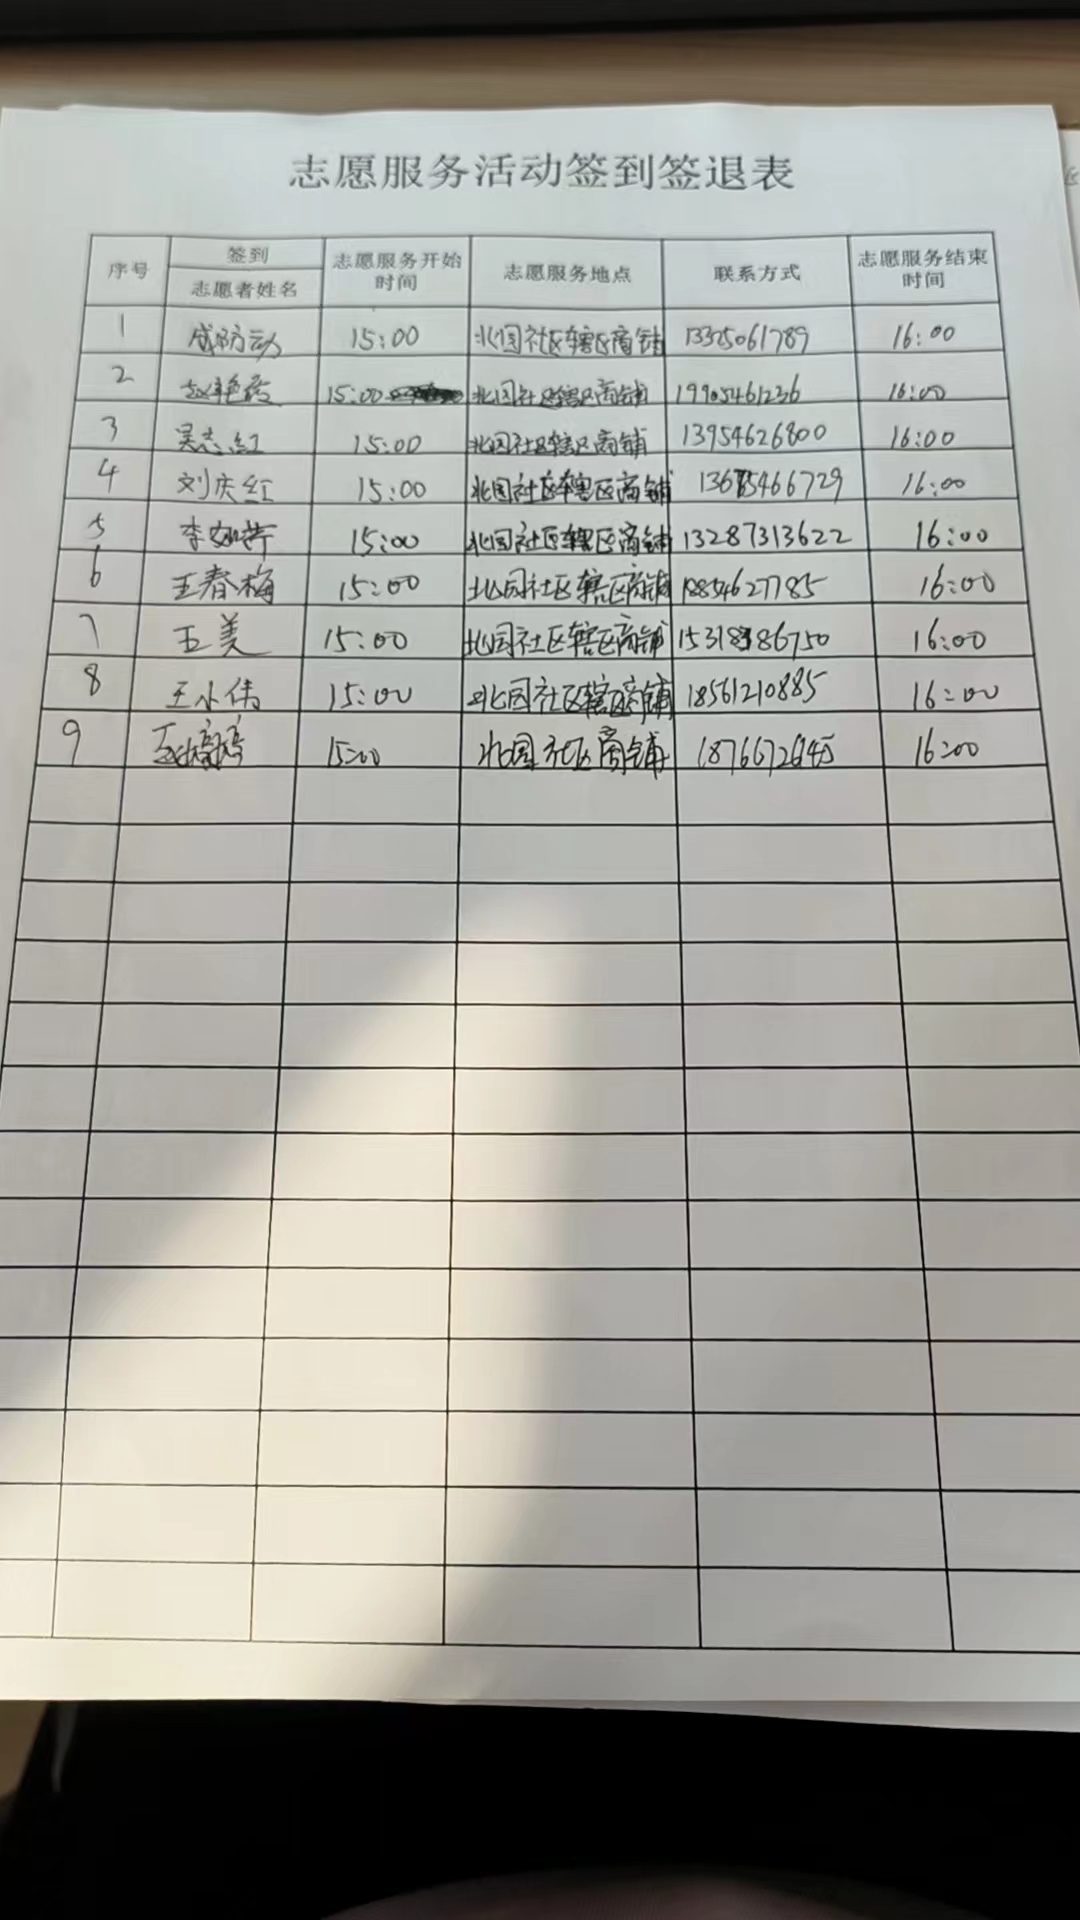 志愿服务活动签到签退表
序号 签到 志愿者姓名 志愿服务开始时间 志愿服务地点 联系方式 志愿服务结束时间
1 15:00 北园社区辖区商铺 13325061789 16:00
2 赵艳霞 15:00 北园社区辖区商铺 19905461236 16:00
3 吴志红 15:00 北园社区辖区商铺 13954626800 16:00
4 刘庆红 15:00 北园社区辖区商铺 16:00
5 15:00 北园社区辖区商铺 13287313622 16:00
6 王春梅 15:00 北园社区辖区商铺 18854627785 16:00
7 王美 15:00 北园社区辖区商铺 16:00
8 王小伟 15:00 北园社区辖区商铺 18561210885 16:00
9 15:00 北园社区商铺 16:00